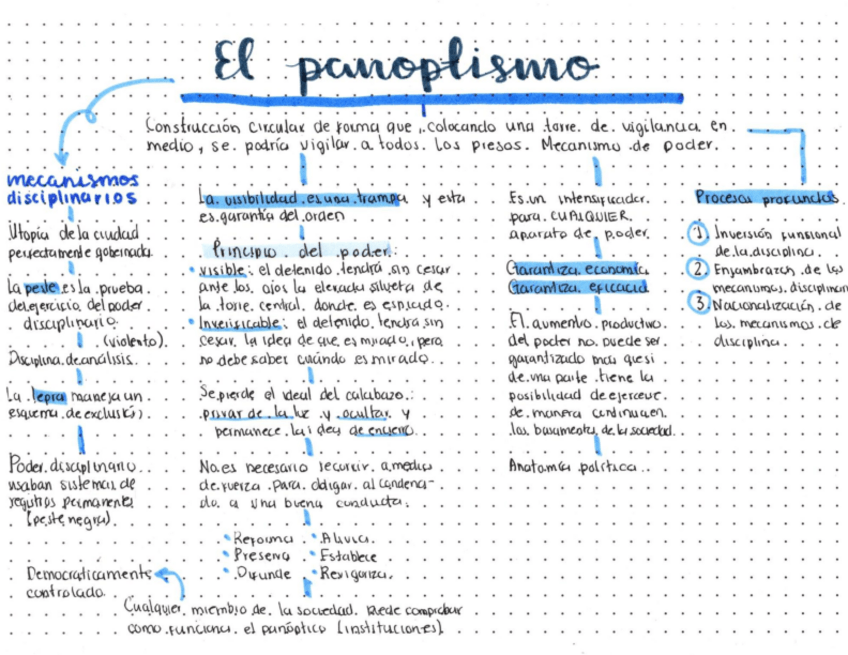 El panoptismo
Construcción circular de forma que, colocando una torre de vigilancia en
medio, se podría vigilar a todos los presos. Mecanismo de poder.
mecanismos
disciplinarios
Utopía de la ciudad
perfectamente gobernada
La peste es la prueba
del ejercicio del poder
disciplinario
(violento).
Disciplina de análisis.
La lepra maneja un
esquema de exclusión
Poder disciplinario
usaban sistemas de
registros permanentes
(peste negra).
Democraticamente
controlado
La visibilidad es una trampa y esta
es garantía del orden
Principio del poder:
visible: el detenido tendrá sin cesar
ante los ojos la elevada silueta de
la torre central donde es espiado.
Inverificable: el detenido tendrá sin
cesar la idea de que es mirado, pero
no debe saber cuándo es mirado.
Se pierde el ideal del calabozo:
privar de la luz y ocultar y
permanece la idea de encierro.
No es necesario recurrir a medios
de fuerza para obligar al condena-
do a una buena conducta.
Reforma
Preserva
Difunde
Alivia.
Establece
Revigoriza.
Cualquier miembro de la sociedad puede comprobar
como funciona el panóptico (instituciones).
Es un intensificador
para CUALQUIER
aparato de poder.
Garantiza economía
Garantiza eficacia
El aumento productivo
del poder no puede ser
garantizado más que si
de una parte tiene la
posibilidad de ejercerse
de manera continua en
los basamentos de la sociedad.
Anatomía política.
Procesos profundos
1. Inversión funsional
de la disciplina.
2. Enjambrazon de los
mecanismos disciplinari
3. Nacionalización de
los mecanismos de
disciplina.